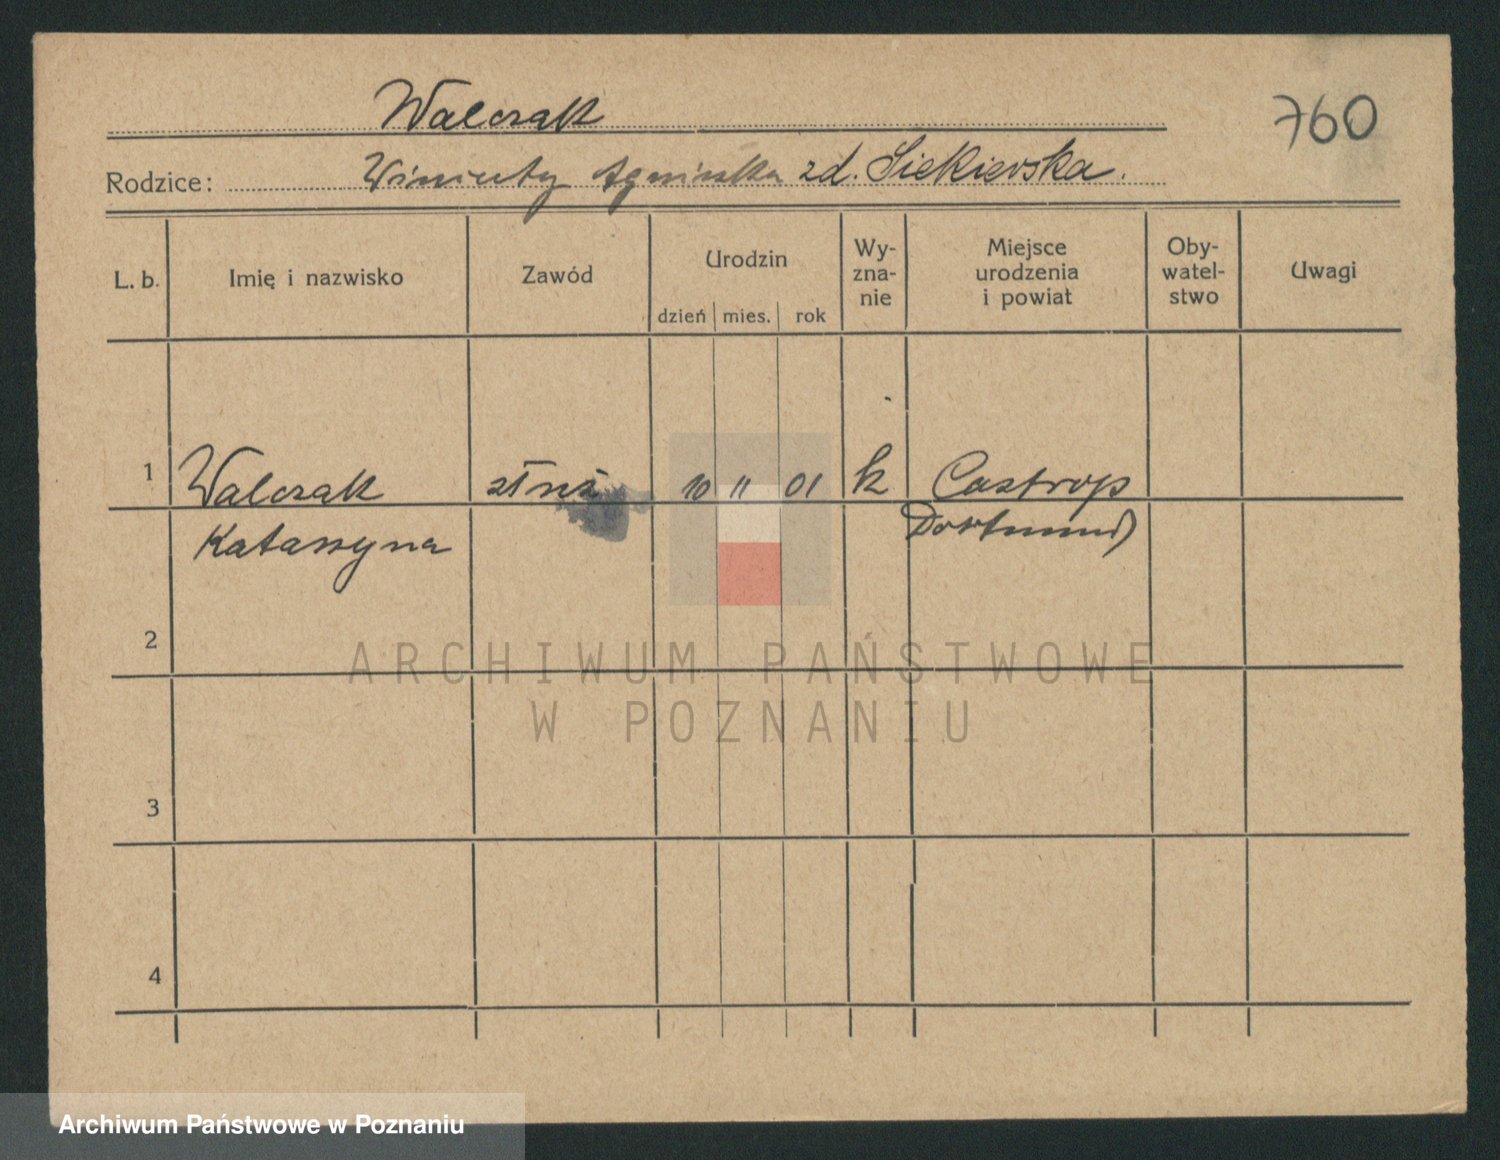 Walczak
760
Rodzice: Wincenty Agnieszka zd. Siekierska.
L. b. Imię i nazwisko Zawód Urodzin Wy-zna-nie Miejsce urodzenia i powiat Oby-watel-stwo Uwagi
dzień mies. rok
1 Walczak 10 11 01 k Castrop
Katarzyna Dortmund
2
3
4
ARCHIWUM PAŃSTWOWE
W POZNANIU
Archiwum Państwowe w Poznaniu